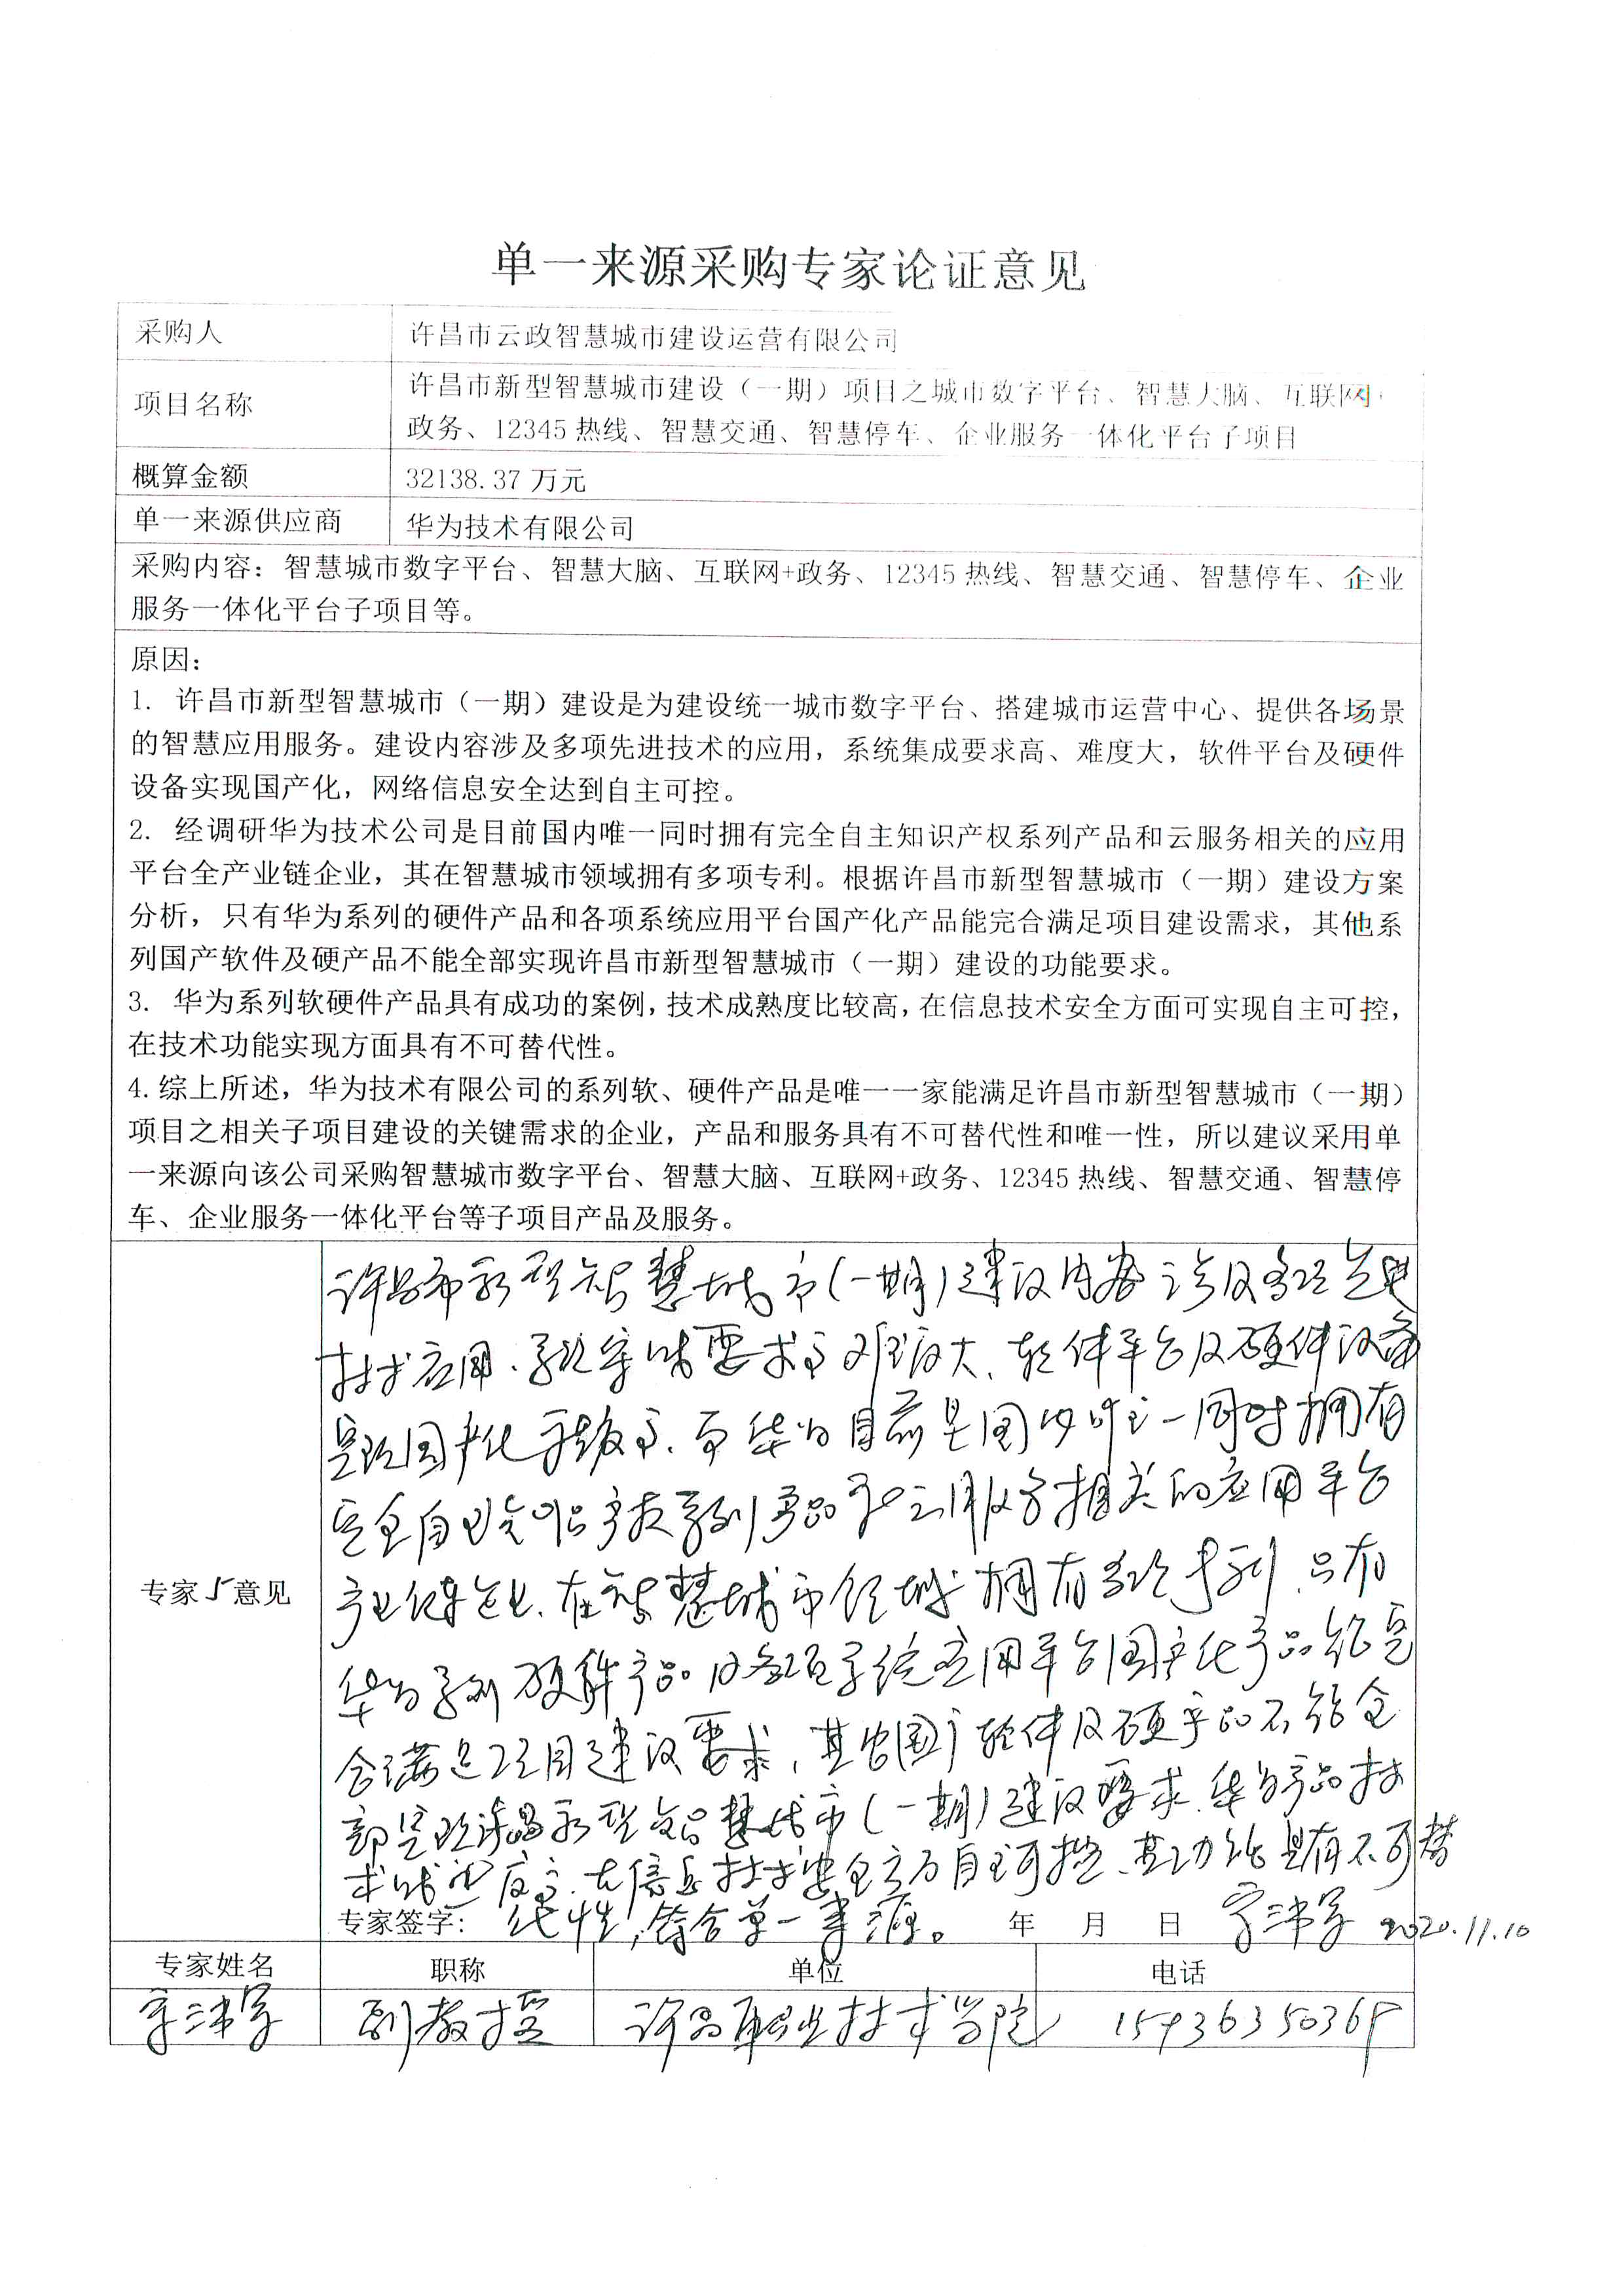 单一来源采购专家论证意见
采购人
许昌市云政智慧城市建设运营有限公司
项目名称
许昌市新型智慧城市建设（一期）项目之城市数字平台、智慧大脑、互联网+
政务、12345热线、智慧交通、智慧停车、企业服务一体化平台子项目
概算金额
32138.37 万元
单一来源供应商
华为技术有限公司
采购内容：智慧城市数字平台、智慧大脑、互联网+政务、12345热线、智慧交通、智慧停车、企业
服务一体化平台子项目等。
原因：
1. 许昌市新型智慧城市（一期）建设是为建设统一城市数字平台、搭建城市运营中心、提供各场景
的智慧应用服务。建设内容涉及多项先进技术的应用，系统集成要求高、难度大，软件平台及硬件
设备实现国产化，网络信息安全达到自主可控。
2. 经调研华为技术公司是目前国内唯一同时拥有完全自主知识产权系列产品和云服务相关的应用
平台全产业链企业，其在智慧城市领域拥有多项专利。根据许昌市新型智慧城市（一期）建设方案
分析，只有华为系列的硬件产品和各项系统应用平台国产化产品能完合满足项目建设需求，其他系
列国产软件及硬产品不能全部实现许昌市新型智慧城市（一期）建设的功能要求。
3. 华为系列软硬件产品具有成功的案例，技术成熟度比较高，在信息技术安全方面可实现自主可控，
在技术功能实现方面具有不可替代性。
4.综上所述，华为技术有限公司的系列软、硬件产品是唯一一家能满足许昌市新型智慧城市（一期）
项目之相关子项目建设的关键需求的企业，产品和服务具有不可替代性和唯一性，所以建议采用单
一来源向该公司采购智慧城市数字平台、智慧大脑、互联网+政务、12345热线、智慧交通、智慧停
车、企业服务一体化平台等子项目产品及服务。
专家5意见
许昌市新型智慧城市（一期）建设内容涉及多项先进
技术应用、系统集成要求高难度大、软件平台及硬件设备
实现国产化
、而华为目前是国内唯一同时拥有
完全自主知识产权系列产品和云服务相关的应用平台
产业链企业、在智慧城市领域拥有多项专利、只有
华为系列硬件产品及各项系统应用平台国产化产品能完
合满足项目建设要求，其他国产软件及硬产品不能全
部实现许昌新型智慧城市（一期）建设要求、华为产品技
术成熟度高、在信息技术安全方面自主可控、其功能具有不可替
代性，符合单一来源。
专家签字：
年 月 日
2020.11.10
专家姓名
职称
单位
电话
副教授
许昌职业技术学院